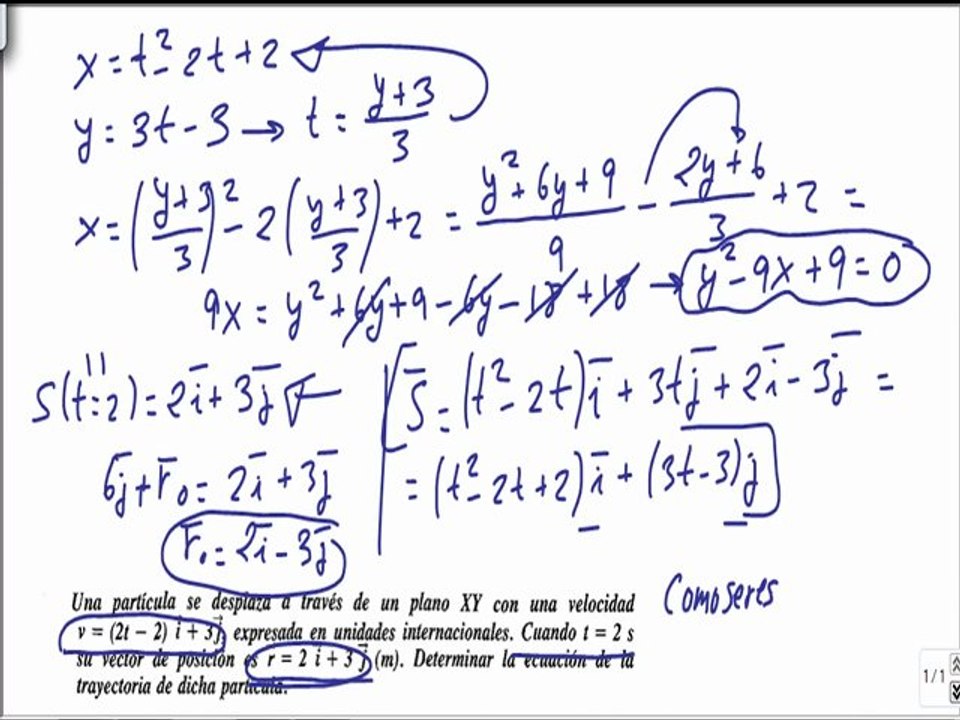 x = t² - 2t + 2
y = 3t - 3 → t = (y+3)/3
x = ((y+3)/3)² - 2((y+3)/3) + 2 = (y² + 6y + 9)/9 - (2y+6)/3 + 2 =
9x = y² + 6y + 9 - 6y - 18 + 18 → y² - 9x + 9 = 0
S(t=2") = 2i̅ + 3j̅
6j̅ + r̅₀ = 2i̅ + 3j̅
r̅₀ = 2i̅ - 3j̅
S̅ = (t² - 2t)i̅ + 3tj̅ + 2i̅ - 3j̅ =
= (t² - 2t + 2)i̅ + (3t - 3)j̅
Una partícula se desplaza a través de un plano XY con una velocidad
v = (2t – 2) i + 3j⃗, expresada en unidades internacionales. Cuando t = 2 s
su vector de posición es r = 2 i + 3 j⃗ (m). Determinar la ecuación de la
trayectoria de dicha partícula.
Como seres
1/1